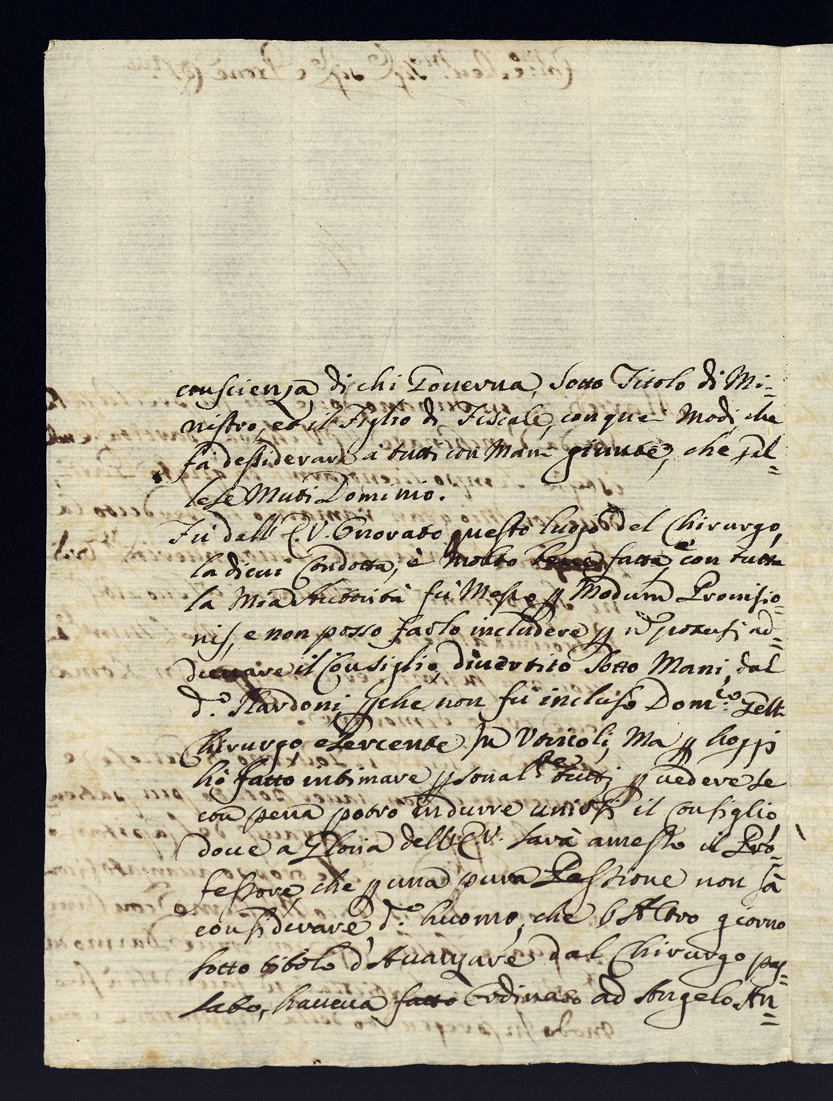 conscienza, di chi Gouerna, sotto Titolo di Mi=
nistro, et il Figlio di Fiscale, con que Modi che
fà dessiderare à tutti con Mani giunte, che si
Muti Dominio.
Fù dall' E.V. Onorato questo luogo del Chirurgo,
la di cui Condotta, è molto fatta, e con tutta
la Mia Auttorità fù Messo per Modum Prouisio=
nis, e non posso farlo includere per ad=
unare il Consiglio, diuertito sotto Mani, dal
d.º Nardoni, perche non fù incluso Dom.co
Chirurgo, e Parente in Vtricoli, Ma per hoggi
hò fatto intimare personal.te tutti per uedere se
con pena potrò indurre unirsi il Consiglio
doue a Gloria dell' E.V. sarà amesso il Pro=
fessore, che per una pura Passione non fà
considerare, d.º huomo, che l'Altro giorno
sotto titolo d'Auanzare dal Chirurgo pas=
sato, haueua fatto Ordinato ad Angelo An=